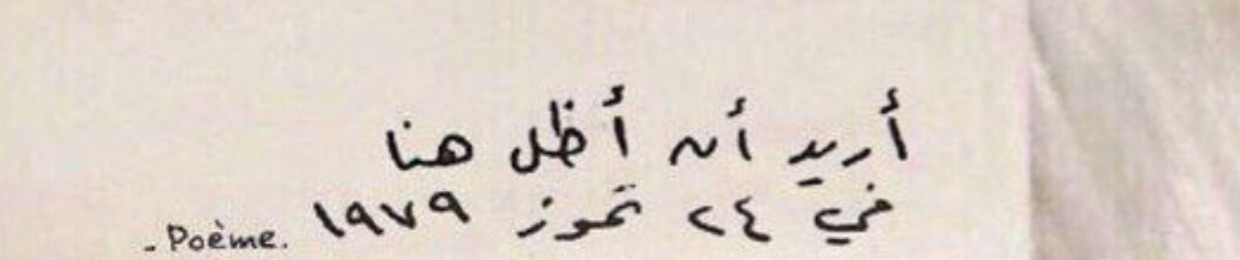 أريد أن أظل هنا
في ٢٤ تموز ١٩٧٩
- Poème.